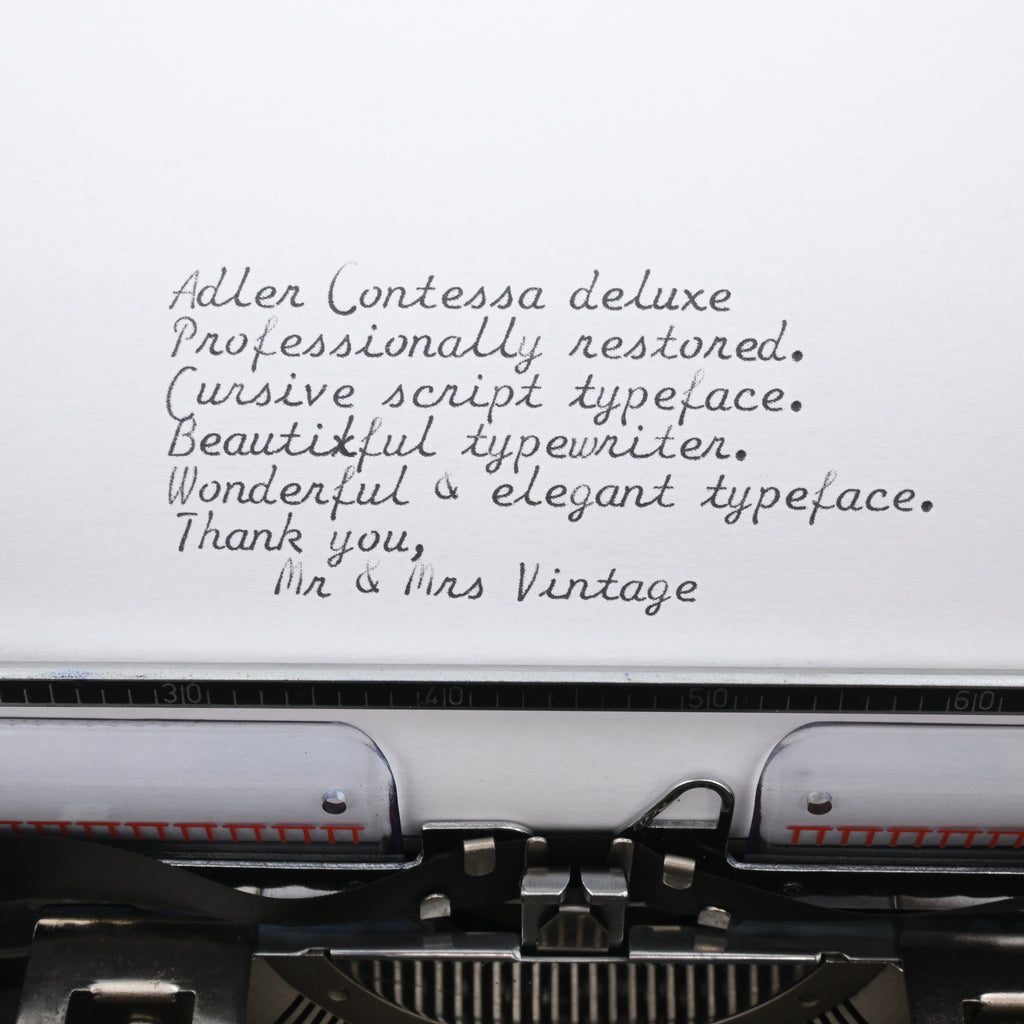 Adler Contessa deluxe
Professionally restored.
Cursive script typeface.
Beautixful typewriter.
Wonderful & elegant typeface.
Thank you,
Mr & Mrs Vintage
30 40 50 60